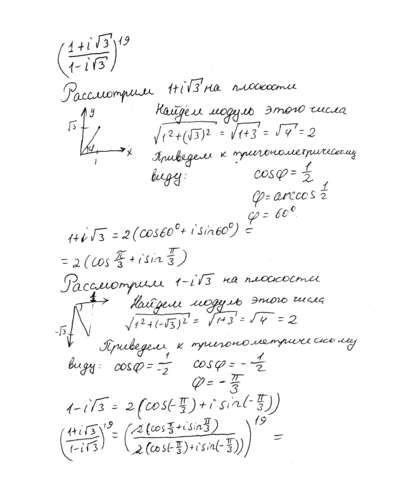 ((1+i√3)/(1-i√3))^19
Рассмотрим 1+i√3 на плоскости
Найдем модуль этого числа
y
√3
φ
1
x
√(1²+(√3)²) = √(1+3) = √4 = 2
Приведем к тригонометрическому
виду: cosφ = 1/2
φ = arccos 1/2
φ = 60°
1+i√3 = 2(cos60° + i sin60°) =
= 2(cos π/3 + i sin π/3)
Рассмотрим 1-i√3 на плоскости
1
-√3
Найдем модуль этого числа
√(1²+(-√3)²) = √(1+3) = √4 = 2
Приведем к тригонометрическому
виду: cosφ = 1/-2 cosφ = -1/2
φ = -π/3
1-i√3 = 2(cos(-π/3) + i sin(-π/3))
((1+i√3)/(1-i√3))^19 = (2(cos π/3 + i sin π/3)/2(cos(-π/3) + i sin(-π/3)))^19 =